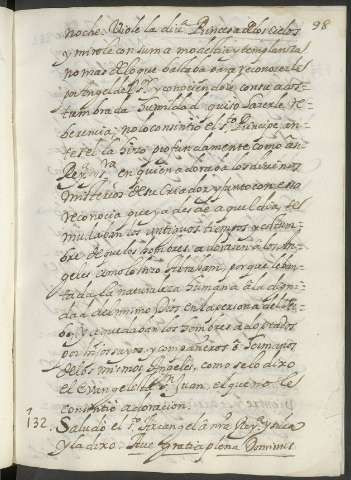 98
noche. Viole la div.ª Princesa de los cielos
y mirole con suma modestia y templanza
no mas de lo que bastaba para reconocerle
por Angel del S.r y conociendole con su acos-
tumbrada humildad quiso hacerle re-
berencia; no lo consintio el S.to Principe, an-
tes el la hizo profundamente como a su
Rey.na en quien adoraba los divinos
misterios de su Criador, y junto con eso
reconocia que ya desde aquel dia se
mudaban los antiguos tiempos y costum-
bre de que los hombres adorasen a los An-
geles como lo hizo Abrahan; porque leban-
tada la naturaleza humana a la digni-
dad del mismo Dios en la persona del Ver-
bo, ya quedaban los hombres adoptados
por hijos suyos, y compañeros o hermanos
de los mismos Angeles, como se lo dixo
al Evangelista S.n Juan, el que no le
consintio adoracion.
132. Saludo el S.to Arcangel a nra Reyna y suya
y la dixo: Ave gratia plena Dominus